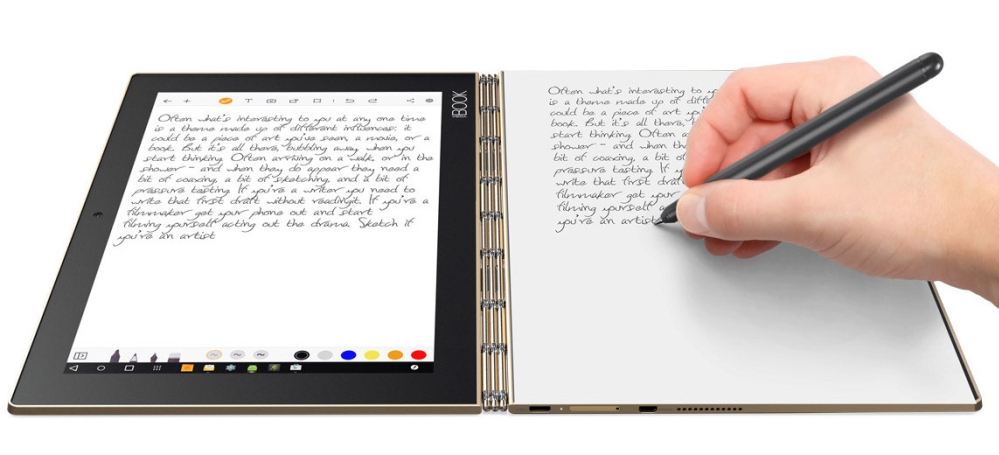 Often what's interesting to you at any one time
is a theme made up of different influences: it
could be a piece of art you've seen, a movie, or a
book. But it's all there, bubbling away, when you
start thinking. Often arriving on a walk, or in the
shower - and when they do appear they need a
bit of coaxing, a bit of sketching, and a bit of
pressure testing. If you're a writer you need to
write that first draft without readingit. If you're a
filmmaker get your phone out and start
filming yourself acting out the drama. Sketch if
you're an artist
BOOK
Often what's interesting to
is a theme made up of
could be a piece of art
book. But it's all there,
start thinking. Often
shower - and when
bit of coaxing, a bit of
pressure testing. If
write that first draft
filmmaker get your
filming yourself
you're an artist